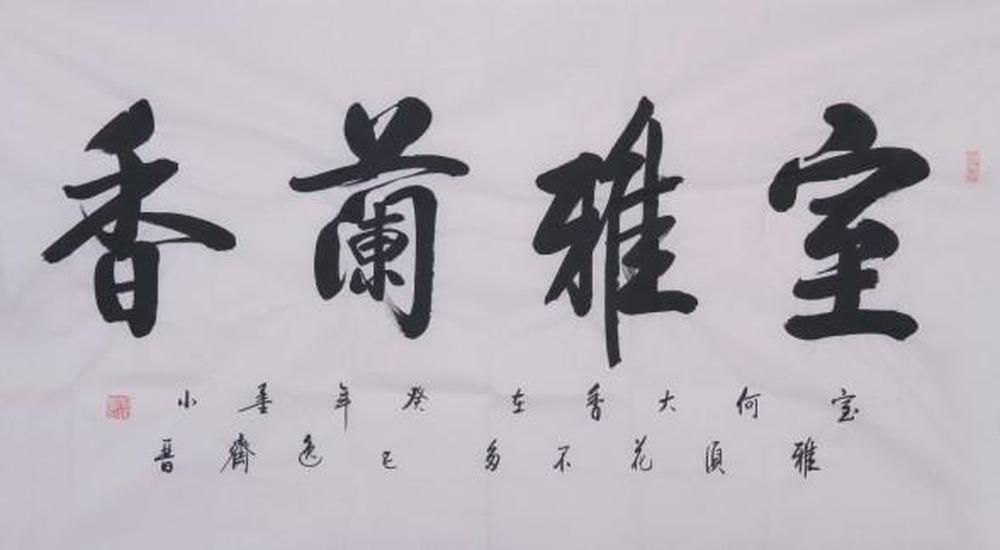 室雅蘭香
室雅何須大花香不在多癸巳年逸墨齋小晉